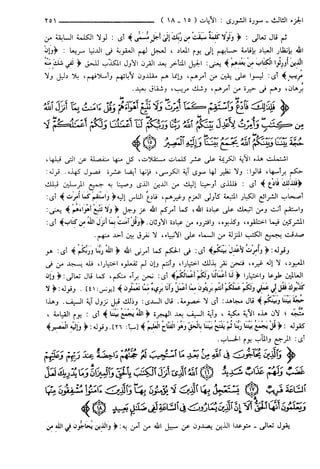 الجزء الثالث - سورة الشورى : الآيات ( ١٥ - ١٨ ) ٢٥١
ثم قال تعالى : ﴿ وَلَوْلَا كَلِمَةٌ سَبَقَتْ مِن رَّبِّكَ إِلَىٰ أَجَلٍ مُّسَمًّى ﴾ أي : لولا الكلمة السابقة من
الله بإنظار العباد بإقامة حسابهم إلى يوم المعاد ، لعجل لهم العقوبة في الدنيا سريعا : ﴿ وَإِنَّ
الَّذِينَ أُورِثُوا الْكِتَابَ مِن بَعْدِهِمْ ﴾ يعنى: الجيل المتأخر بعد القرن الأول المكذب للحق ﴿ لَفِي شَكٍّ مِّنْهُ
مُرِيبٍ ﴾ أي : ليسوا على يقين من أمرهم، وإنما هم مقلدون لآبائهم وأسلافهم، بلا دليل ولا
برهان، وهم في حيرة من أمرهم، وشك مريب، وشقاق بعيد.
﴿ فَلِذَٰلِكَ فَادْعُ وَاسْتَقِمْ كَمَا أُمِرْتَ وَلَا تَتَّبِعْ أَهْوَاءَهُمْ وَقُلْ ءَامَنتُ بِمَا أَنزَلَ اللَّهُ
مِن كِتَابٍ وَأُمِرْتُ لِأَعْدِلَ بَيْنَكُمُ اللَّهُ رَبُّنَا وَرَبُّكُمْ لَنَا أَعْمَالُنَا وَلَكُمْ أَعْمَالُكُمْ
لَا حُجَّةَ بَيْنَنَا وَبَيْنَكُمُ اللَّهُ يَجْمَعُ بَيْنَنَا وَإِلَيْهِ الْمَصِيرُ ١٥ ﴾
اشتملت هذه الآية الكريمة على عشر كلمات مستقلات، كل منها منفصلة عن التي قبلها،
حكم برأسها، قالوا: ولا نظير لها سوى آية الكرسي، فإنها أيضا عشرة فصول كهذه. قوله:
﴿ فَلِذَٰلِكَ فَادْعُ ﴾ أي : فللذي أوحينا إليك من الدين الذي وصينا به جميع المرسلين قبلك
أصحاب الشرائع الكبار المتبعة كأولي العزم وغيرهم، فادع الناس إليه ﴿ وَاسْتَقِمْ كَمَا أُمِرْتَ ﴾ أي :
واستقم أنت ومن اتبعك على عبادة الله، كما أمركم الله عز وجل ﴿ وَلَا تَتَّبِعْ أَهْوَاءَهُمْ ﴾ يعنى :
المشركين فيما اختلقوه، وكذبوه، وافتروه من عبادة الأوثان، ﴿ وَقُلْ آمَنتُ بِمَا أَنزَلَ اللَّهُ مِن كِتَابٍ ﴾ أي :
صدقت بجميع الكتب المنزلة من السماء على الأنبياء، لا نفرق بين أحد منهم.
وقوله: ﴿ وَأُمِرْتُ لِأَعْدِلَ بَيْنَكُمُ ﴾ أي : في الحكم كما أمرني الله ﴿ اللَّهُ رَبُّنَا وَرَبُّكُمْ ﴾ أي : هو
المعبود، لا إله غيره، فنحن نقر بذلك اختيارا، وأنتم وإن لم تفعلوه اختيارا، فله يسجد من في
العالمين طوعا واختيارا ﴿ لَنَا أَعْمَالُنَا وَلَكُمْ أَعْمَالُكُمْ ﴾ أي : نحن برآء منكم، كما قال تعالى: ﴿ وَإِن
كَذَّبُوكَ فَقُل لِّي عَمَلِي وَلَكُمْ عَمَلُكُمْ أَنتُم بَرِيئُونَ مِمَّا أَعْمَلُ وَأَنَا بَرِيءٌ مِّمَّا تَعْمَلُونَ ﴾ [يونس:٤١]. وقوله: ﴿ لَا
حُجَّةَ بَيْنَنَا وَبَيْنَكُمُ ﴾ قال مجاهد: أي لا خصومة. قال السدي: وذلك قبل نزول آية السيف. وهذا
متجه ؛ لأن هذه الآية مكية ، وآية السيف بعد الهجرة ﴿ اللَّهُ يَجْمَعُ بَيْنَنَا ﴾ أي : يوم القيامة ،
كقوله : ﴿ قُلْ يَجْمَعُ بَيْنَنَا رَبُّنَا ثُمَّ يَفْتَحُ بَيْنَنَا بِالْحَقِّ وَهُوَ الْفَتَّاحُ الْعَلِيمُ ﴾ [سبأ: ٢٦]. وقوله: ﴿ وَإِلَيْهِ الْمَصِيرُ ﴾
أي : المرجع والمآب يوم الحساب.
﴿ وَالَّذِينَ يُحَاجُّونَ فِي اللَّهِ مِنْ بَعْدِ مَا اسْتُجِيبَ لَهُ حُجَّتُهُمْ دَاحِضَةٌ عِندَ رَبِّهِمْ وَعَلَيْهِمْ
غَضَبٌ وَلَهُمْ عَذَابٌ شَدِيدٌ ١٦ اللَّهُ الَّذِي أَنزَلَ الْكِتَابَ بِالْحَقِّ وَالْمِيزَانَ وَمَا يُدْرِيكَ لَعَلَّ
السَّاعَةَ قَرِيبٌ ١٧ يَسْتَعْجِلُ بِهَا الَّذِينَ لَا يُؤْمِنُونَ بِهَا وَالَّذِينَ ءَامَنُوا مُشْفِقُونَ مِنْهَا
وَيَعْلَمُونَ أَنَّهَا الْحَقُّ أَلَا إِنَّ الَّذِينَ يُمَارُونَ فِي السَّاعَةِ لَفِي ضَلَالٍ بَعِيدٍ ١٨ ﴾
يقول تعالى ــ متوعدا الذين يصدون عن سبيل الله من آمن به: ﴿ وَالَّذِينَ يُحَاجُّونَ فِي اللَّهِ مِنْ